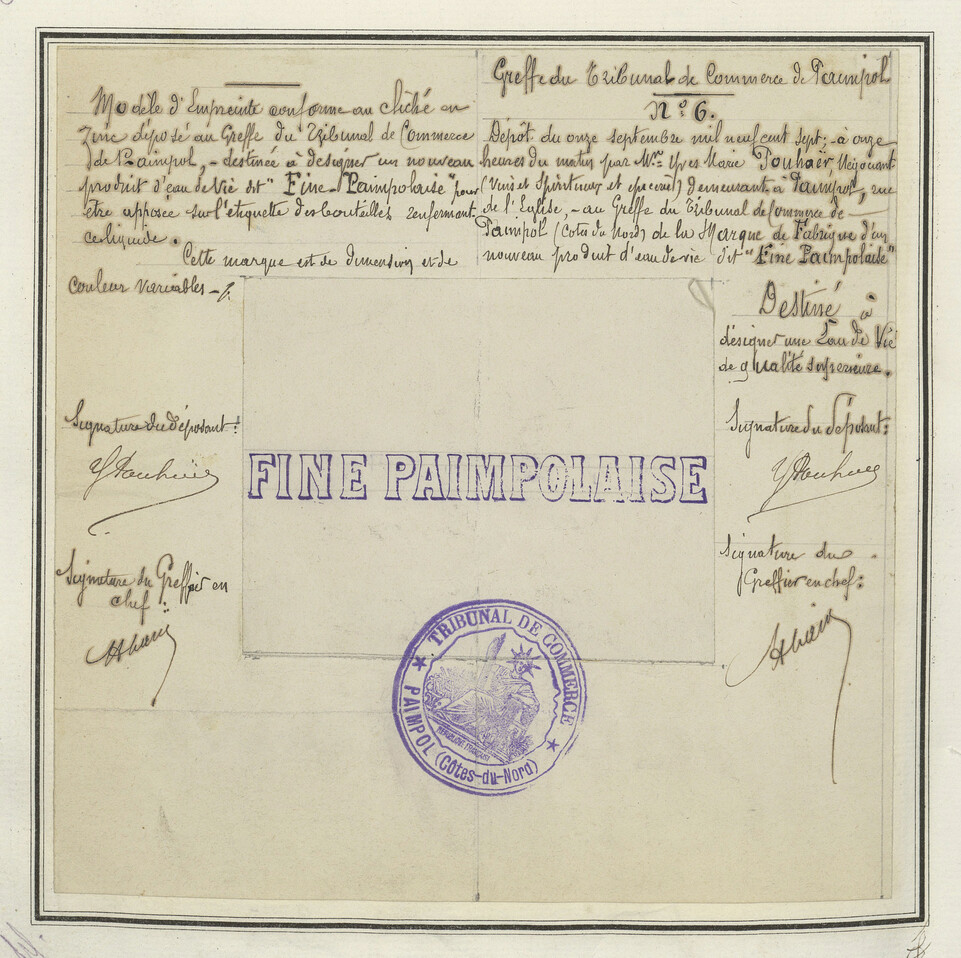 Modèle d'Empreinte conforme au cliché en
zinc déposé au Greffe du Tribunal de Commerce
de Paimpol, - destinée à désigner un nouveau
produit d'eau de Vie dit "Fine Paimpolaise" pour
être apposée sur l'étiquette des bouteilles renfermant
ce liquide.
Cette marque est de dimensions et de
couleur variables -
Signature du déposant:
Y Pouhaër
Signature du Greffier en
chef :
Greffe du Tribunal de Commerce de Paimpol
N° 6.
Dépôt du onze septembre mil neuf cent sept; - à onze
heures du matin par Mr. Yves Marie Pouhaër, Négociant
(Vins et Spiritueux et epicerie) demeurant à Paimpol, rue
de l'Eglise, - au Greffe du Tribunal de Commerce de
Paimpol (Cotes du Nord) de la Marque de Fabrique d'un
nouveau produit d'eau de vie dit "Fine Paimpolaise"
Destiné à
désigner une Eau de Vie
de qualité supérieure.
Signature du déposant:
Y Pouhaër
Signature du
Greffier en chef:
FINE PAIMPOLAISE
TRIBUNAL DE COMMERCE
PAIMPOL (Côtes-du-Nord)
RÉPUBLIQUE FRANÇAISE